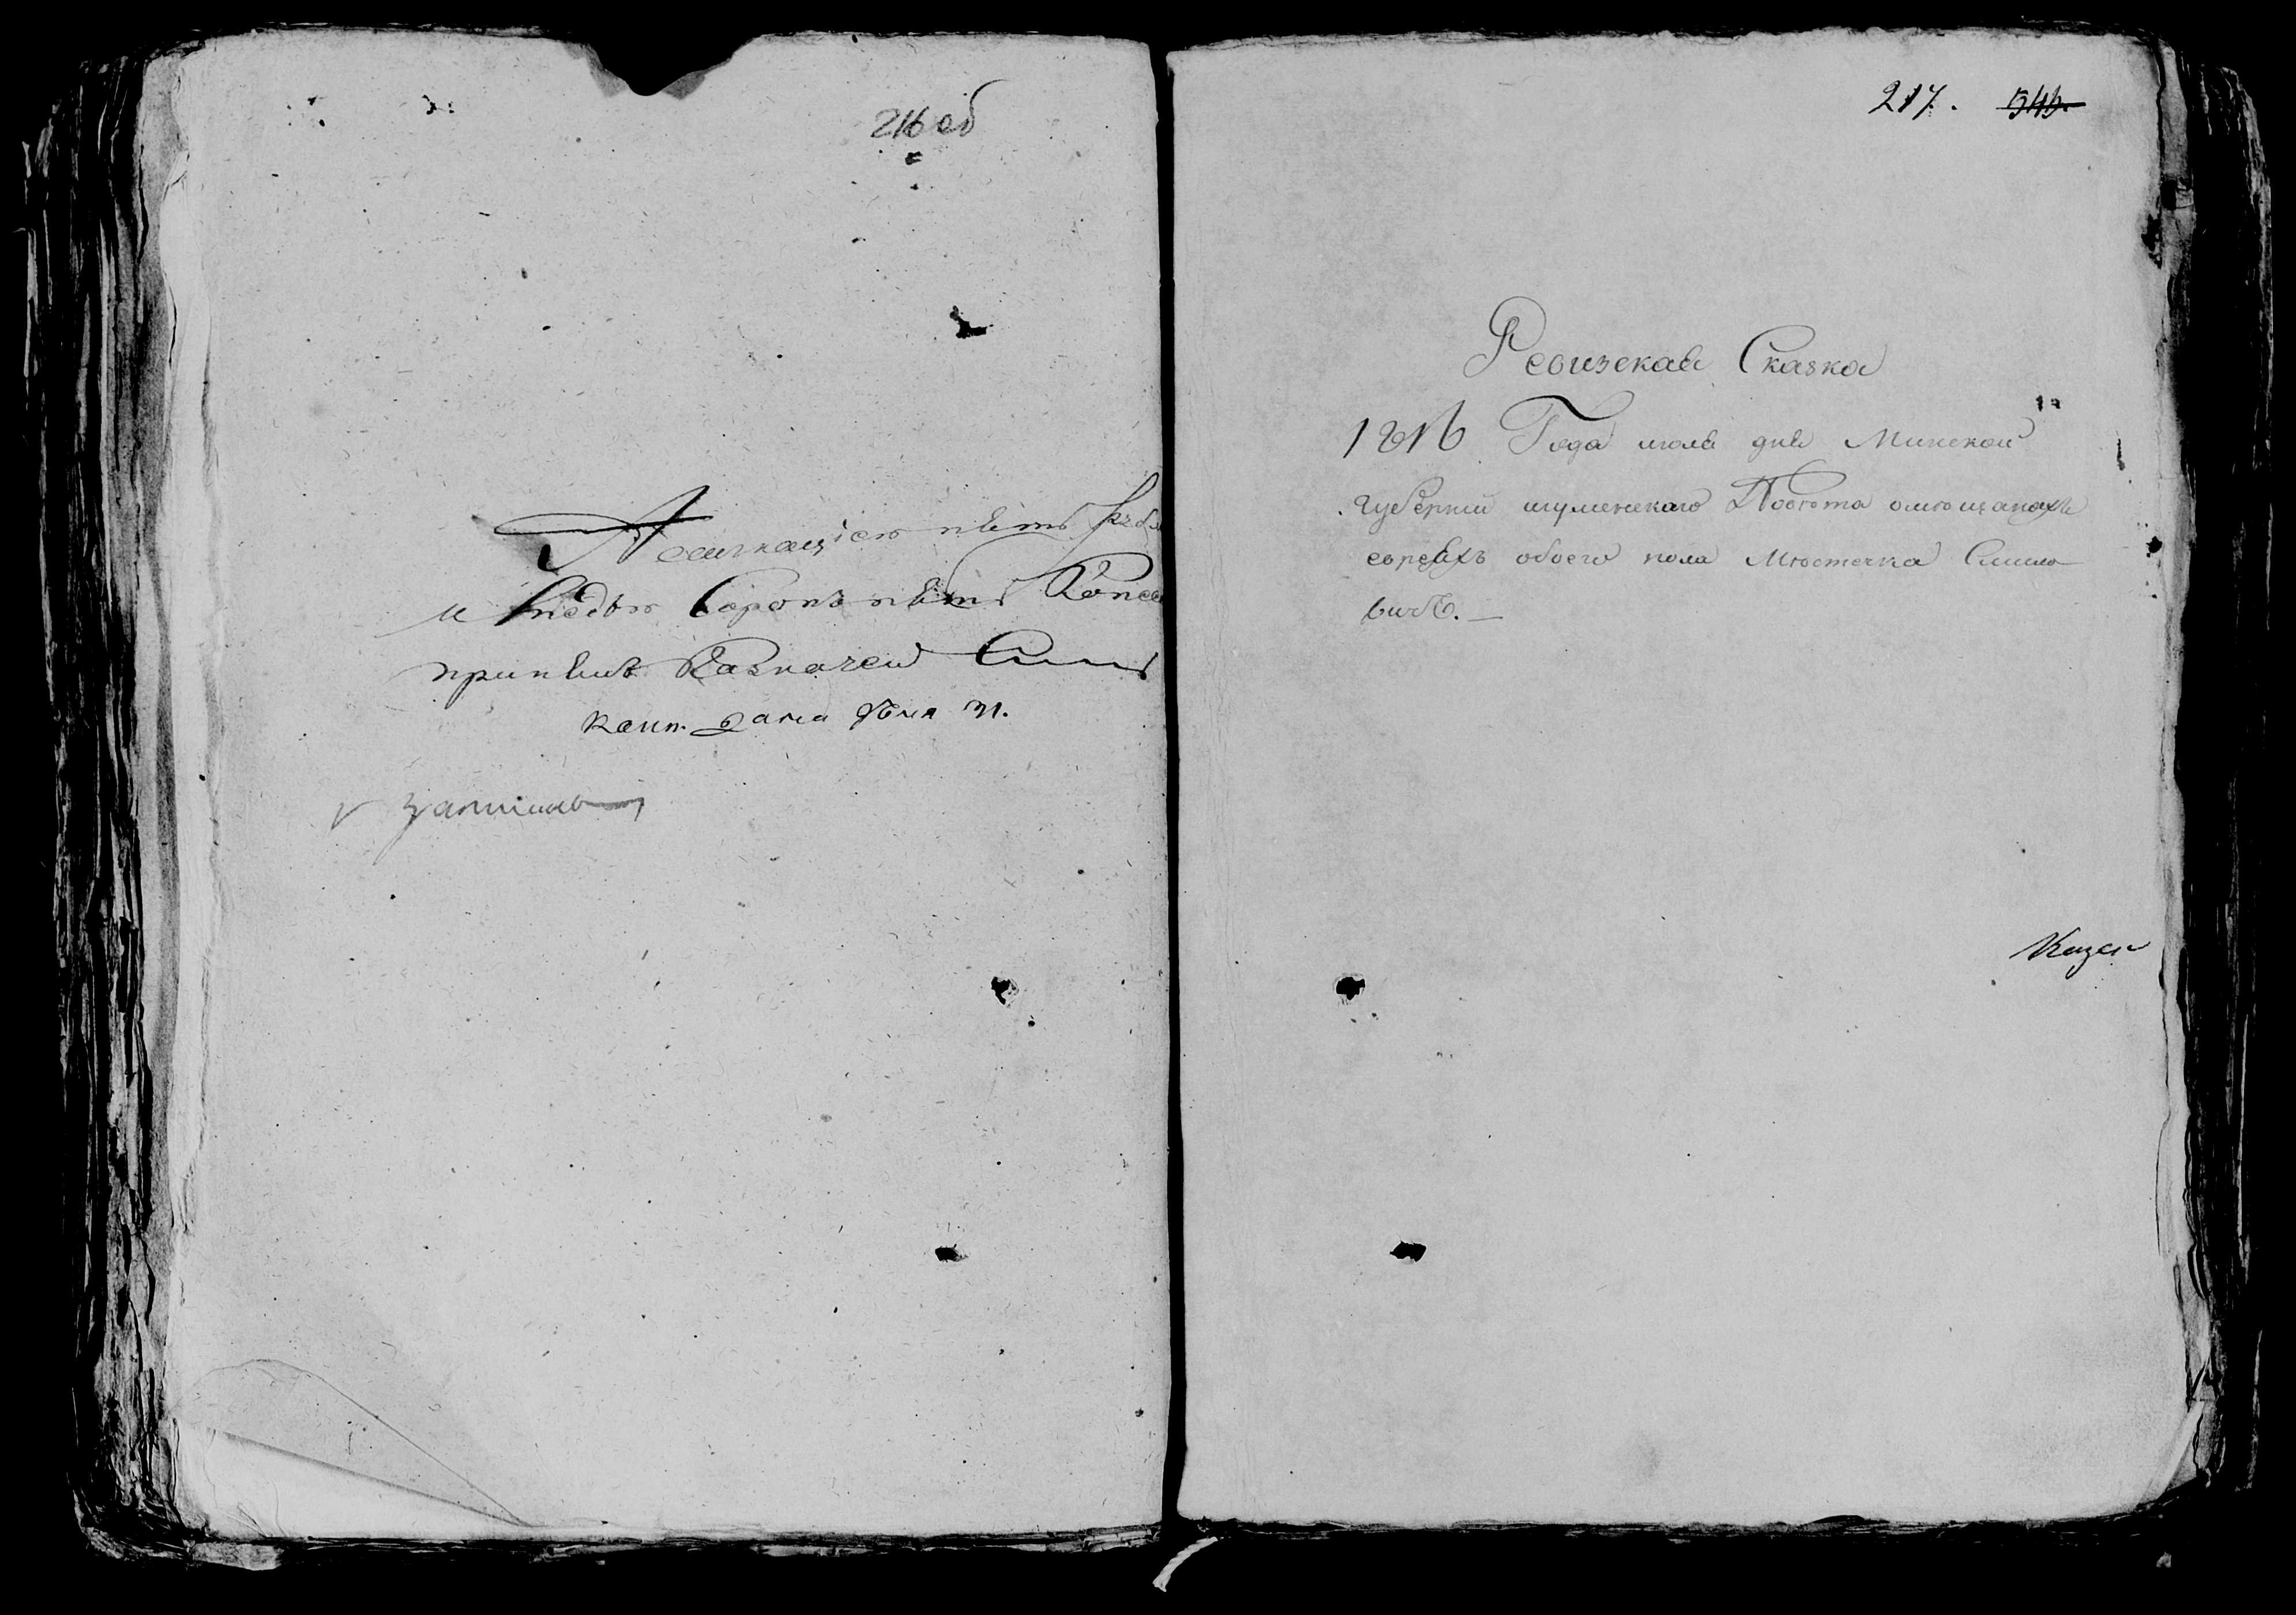 216 об
Ассигнацiею пять рубл
и медью Сорокъ пять Копее
принялъ Казначей
217. 545.
Ревизская Сказка
1816 Года июля дня Минской
губернии игуменскаго Повѣта о мѣщанахъ
евреяхъ обоего пола Мѣстечка Смило
вичь. —